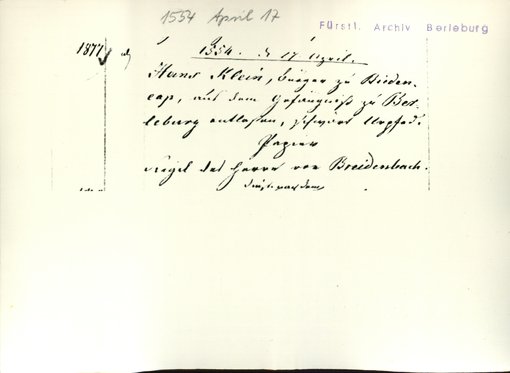 1554 April 17
Fürstl. Archiv Berleburg
1877
1554. d. 17 April.
Hans Klein, Bürger zu Bieden-
cap, aus dem Gefängniß zu Ber-
leburg entlassen, schwört Urphede
Papier
Siegel des Herrn von Breidenbach.